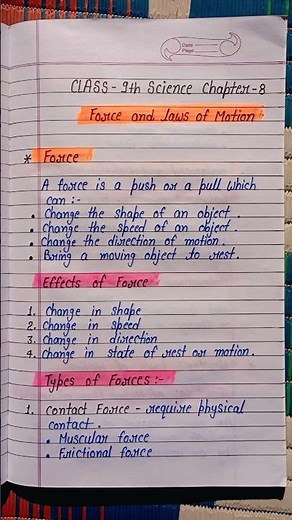 Date
Page
CLASS - 9th Science Chapter-8
Force and Laws of Motion
* Force
A force is a push or a pull which
can :-
• Change the shape of an object.
• Change the speed of an object.
• Change the direction of motion.
• Bring a moving object to rest.
Effects of Force
1. Change in shape
2. Change in speed
3. Change in direction
4. Change in state of rest or motion.
Types of Forces :-
1. Contact Force - require physical
contact.
• Muscular force
• Frictional force